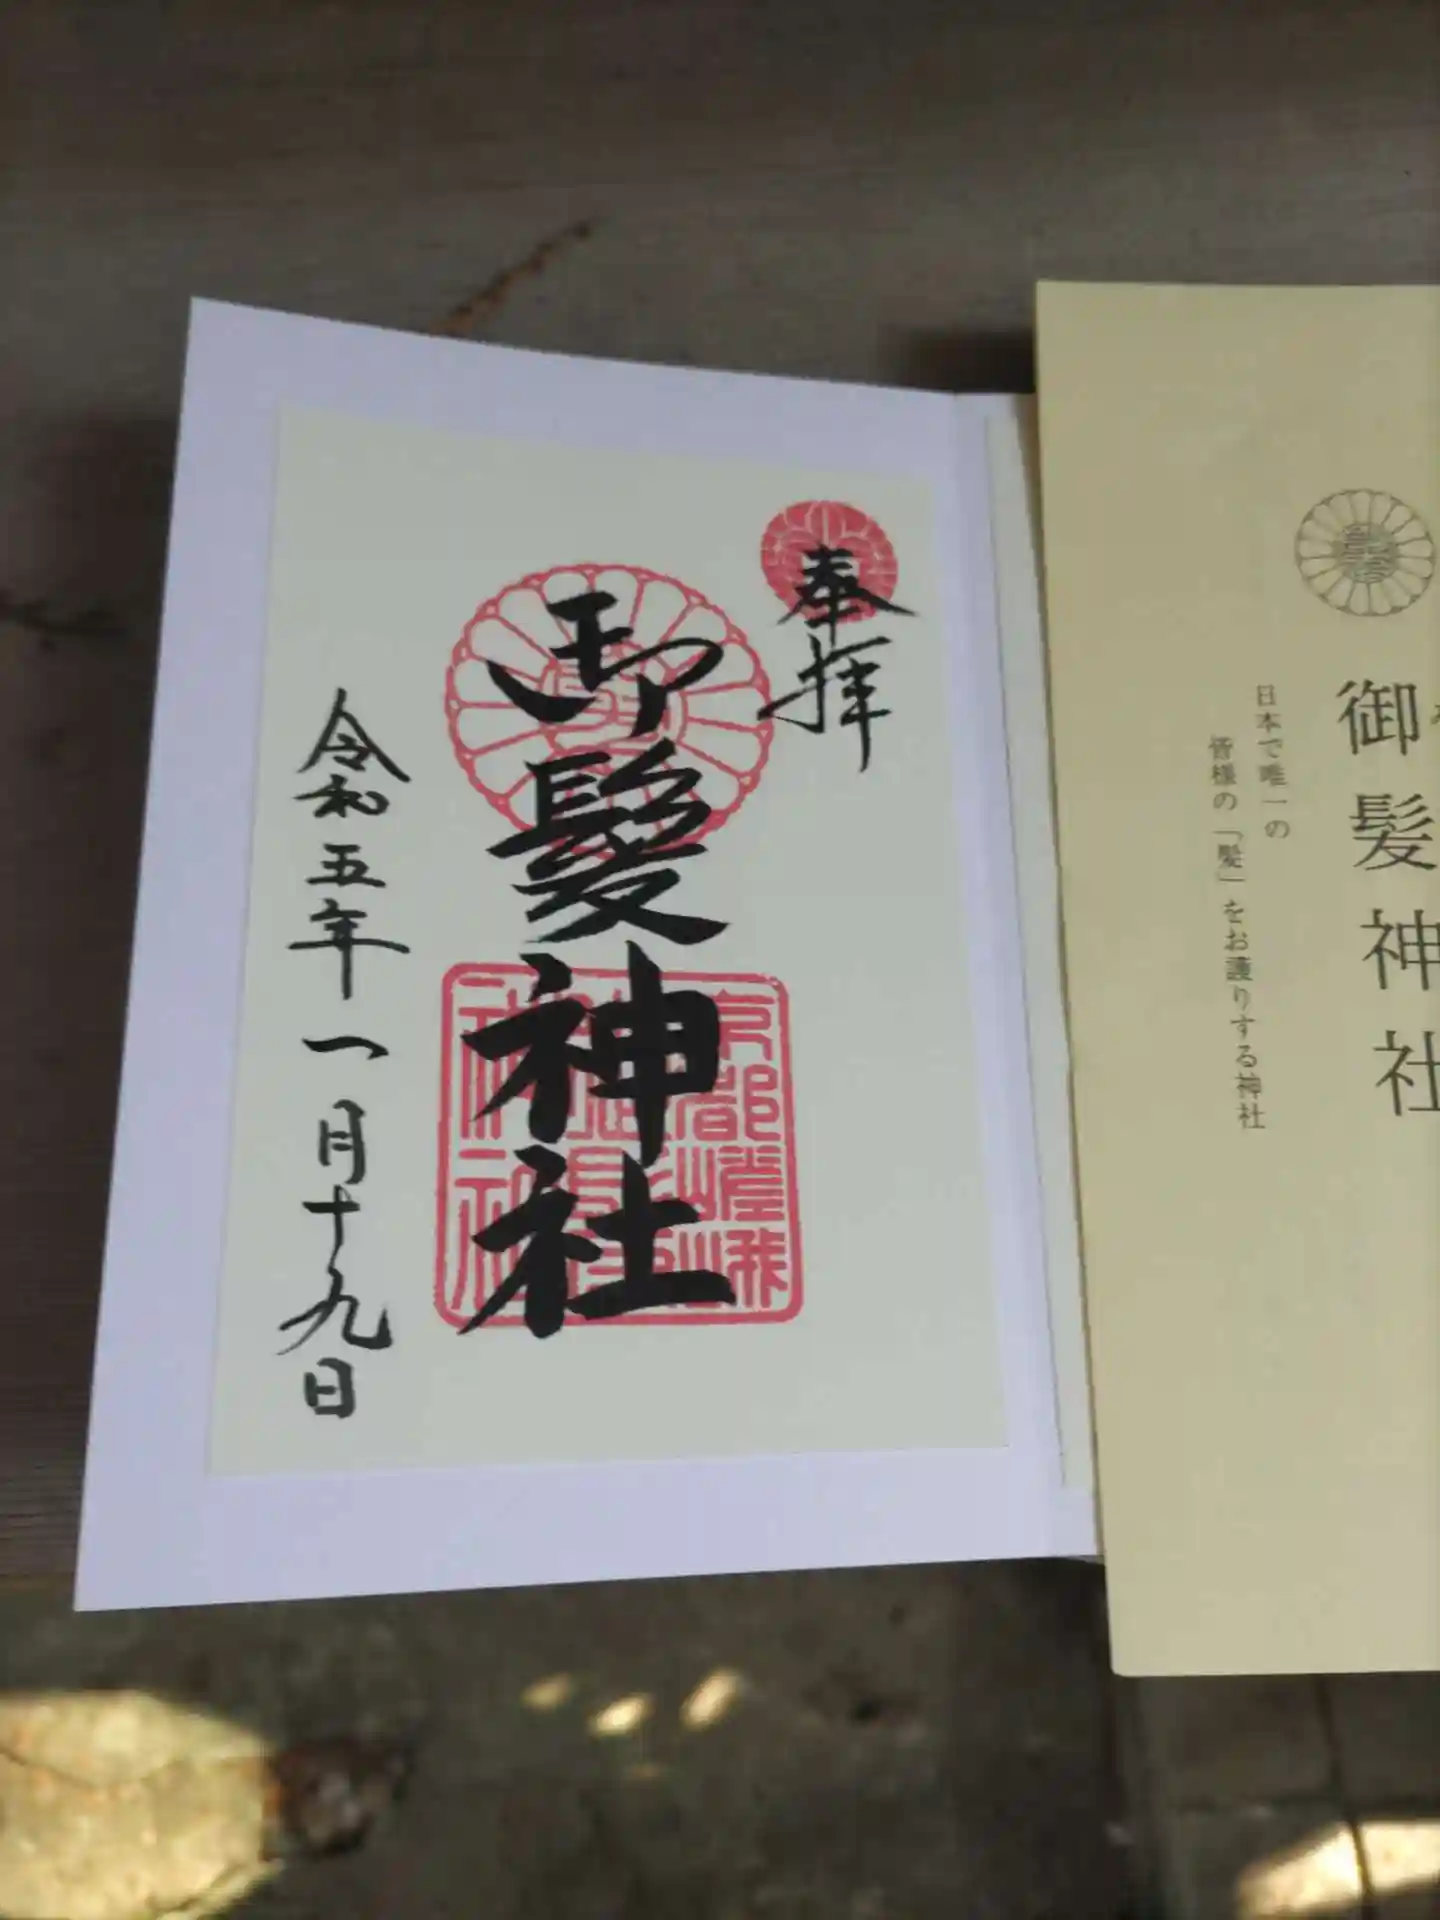 奉拝
御髪神社
令和五年一月十九日
御髪神社
日本で唯一の
皆様の「髪」をお護りする神社